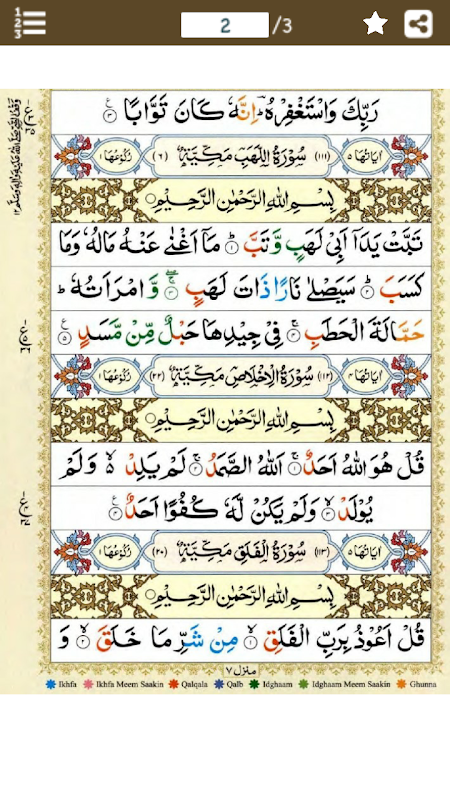 2 /3
رَبِّكَ وَاسْتَغْفِرْهُ ؕ اِنَّهٗ كَانَ تَوَّابًا ۝۳
اٰيَاتُهَا ۵ (۱۱۱) سُوْرَةُ اللَّهَبِ مَكِّيَّةٌ (۶) رُكُوْعُهَا ۱
بِسْمِ اللهِ الرَّحْمٰنِ الرَّحِيْمِ
تَبَّتْ يَدَاۤ اَبِيْ لَهَبٍ وَّتَبَّ ۝۱ مَاۤ اَغْنٰى عَنْهُ مَالُهٗ وَمَا
كَسَبَ ۝۲ سَيَصْلٰى نَارًا ذَاتَ لَهَبٍ ۝۳ وَّامْرَاَتُهٗ ؕ
حَمَّالَةَ الْحَطَبِ ۝۴ فِيْ جِيْدِهَا حَبْلٌ مِّنْ مَّسَدٍ ۝۵
اٰيَاتُهَا ۴ (۱۱۲) سُوْرَةُ الْاِخْلَاصِ مَكِّيَّةٌ (۲۲) رُكُوْعُهَا ۱
بِسْمِ اللهِ الرَّحْمٰنِ الرَّحِيْمِ
قُلْ هُوَ اللهُ اَحَدٌ ۝۱ اَللهُ الصَّمَدُ ۝۲ لَمْ يَلِدْ ۙ۬ وَلَمْ
يُوْلَدْ ۝۳ وَلَمْ يَكُنْ لَّهٗ كُفُوًا اَحَدٌ ۝۴
اٰيَاتُهَا ۵ (۱۱۳) سُوْرَةُ الْفَلَقِ مَكِّيَّةٌ (۲۰) رُكُوْعُهَا ۱
بِسْمِ اللهِ الرَّحْمٰنِ الرَّحِيْمِ
قُلْ اَعُوْذُ بِرَبِّ الْفَلَقِ ۝۱ مِنْ شَرِّ مَا خَلَقَ ۝۲ وَ
منزل ۷
Ikhfa Ikhfa Meem Saakin Qalqala Qalb Idghaam Idghaam Meem Saakin Ghunna